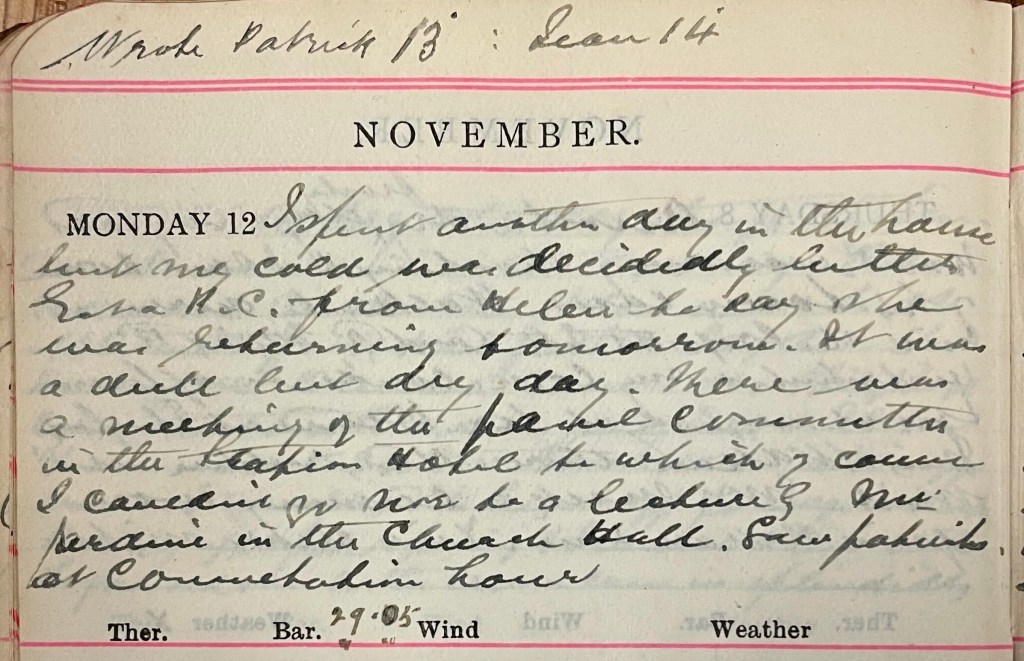 Wrote Patrick 13 : Jean 14
NOVEMBER.
MONDAY 12 I spent another day in the house
but my cold was decidedly better
Got a P.C. from Helen to say she
was returning tomorrow. It was
a dull but dry day. There was
a meeting of the panel Committee
in the Station Hotel to which of course
I couldn't go nor to a lecture by Mr
Jardine in the Church Hall. Saw patients
at Consultation hour
Ther. Bar. 29.05 Wind Weather